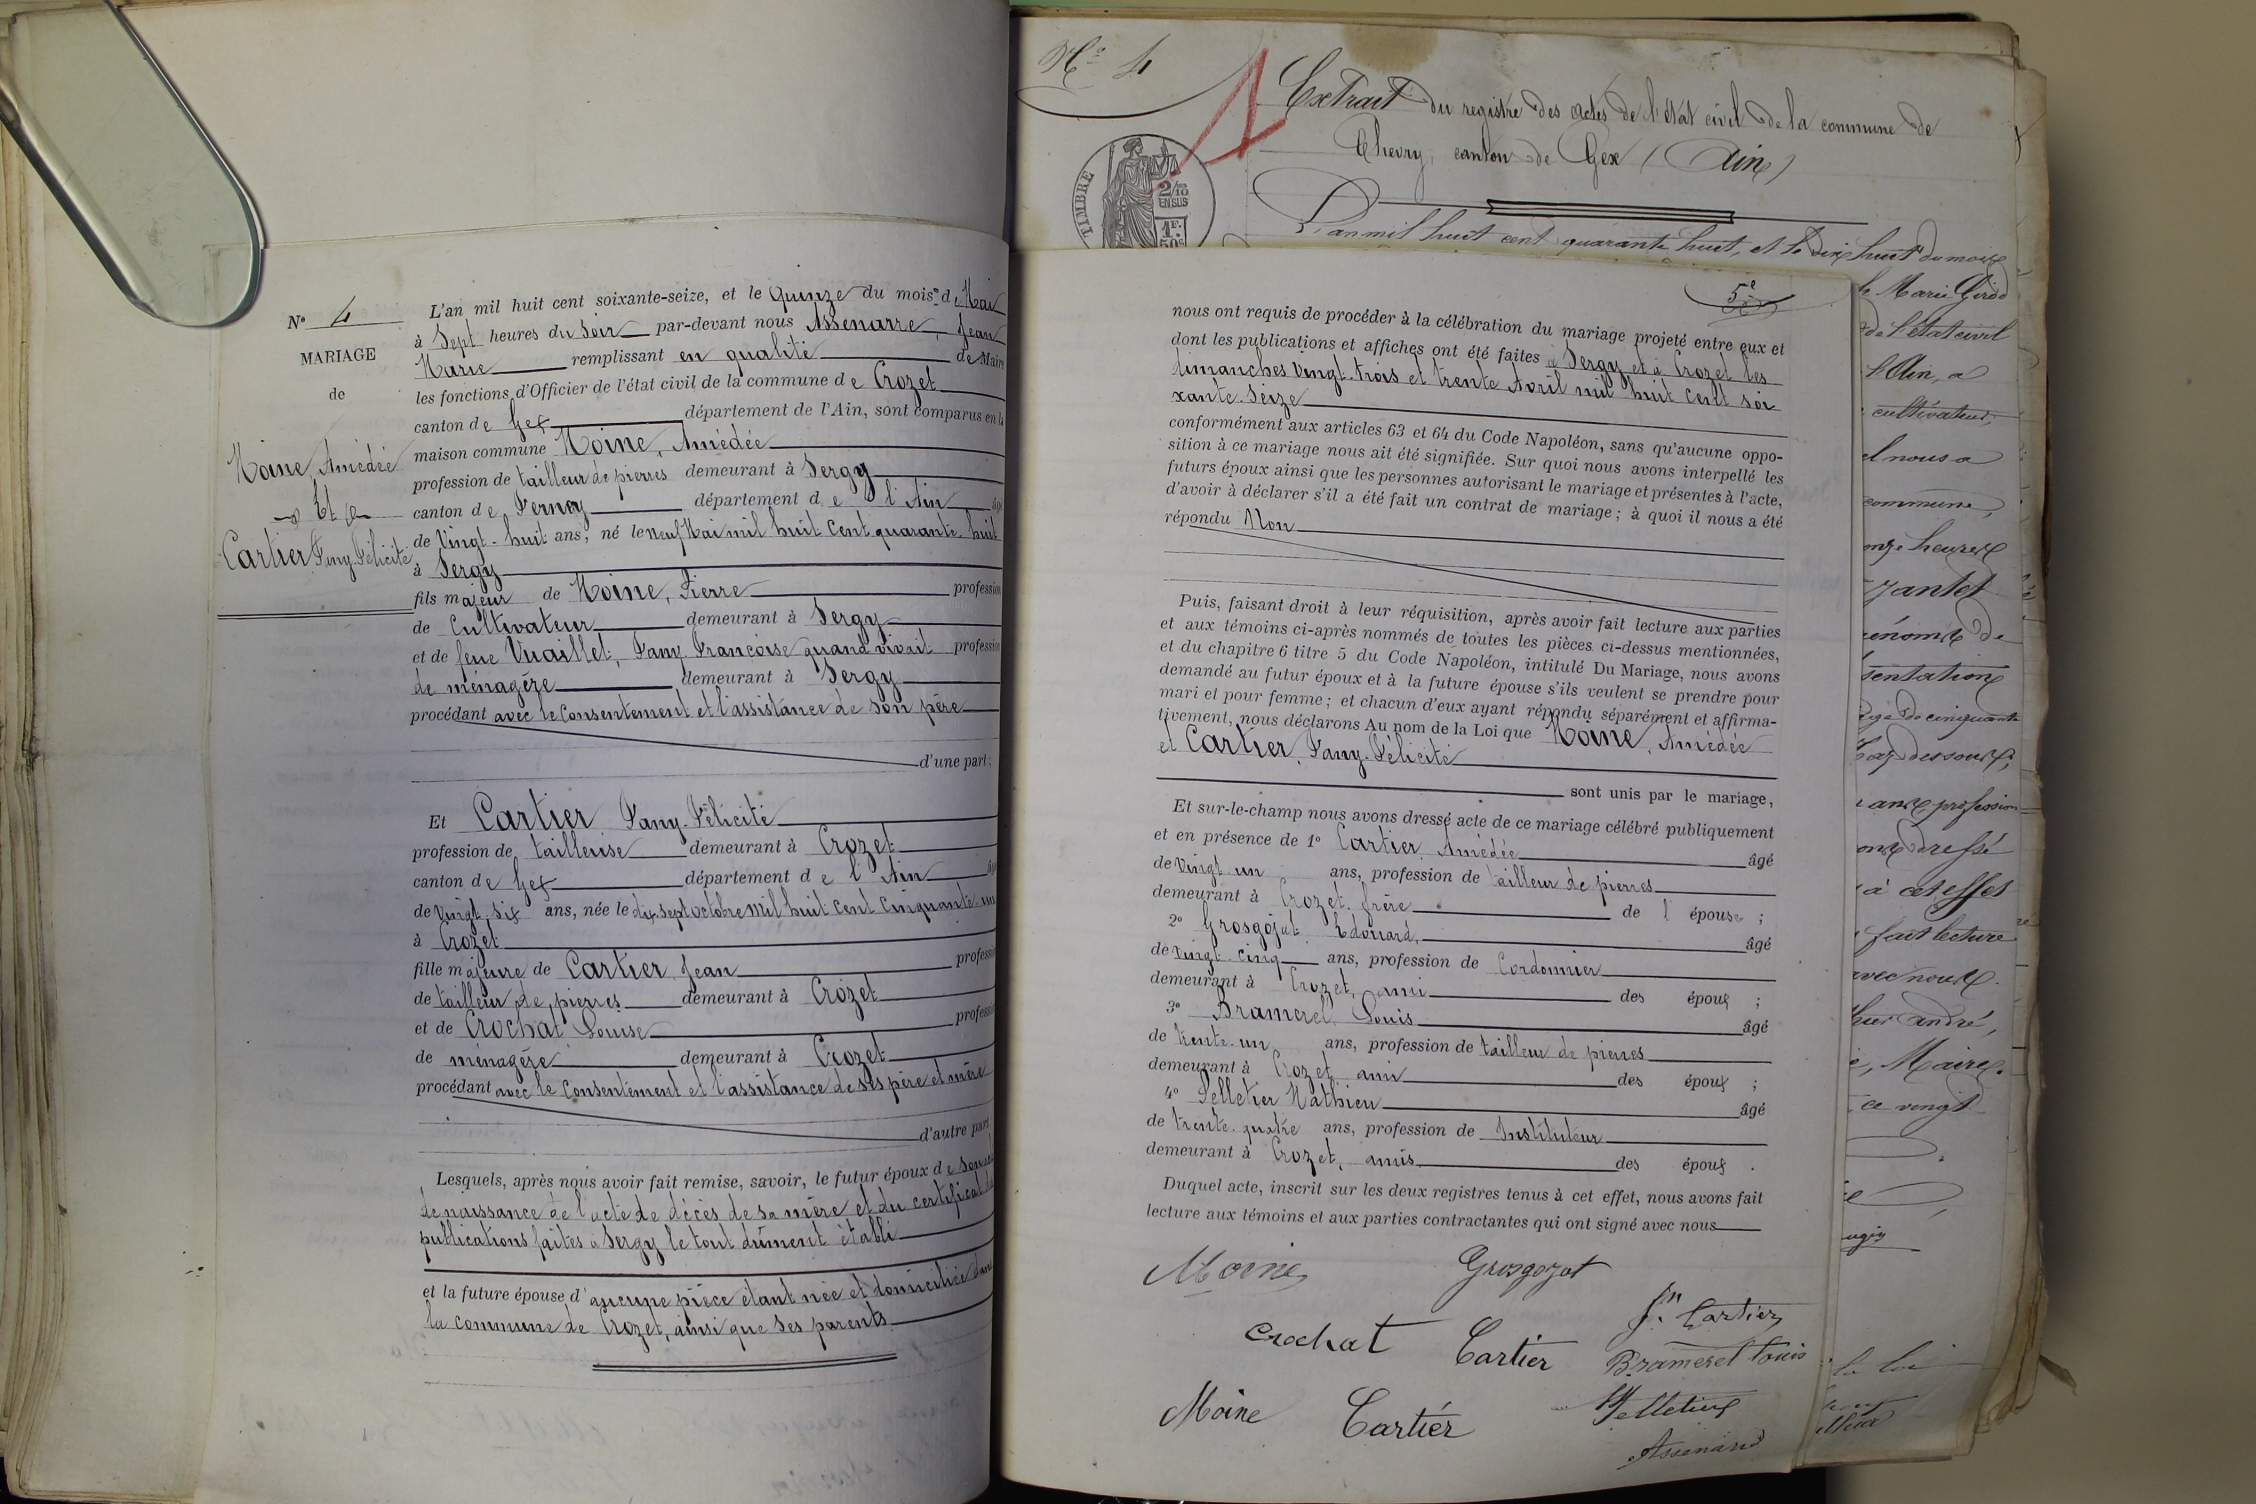 N° 4
MARIAGE
de
Moine, Amédée
Et
Cartier Fany-Félicité
L'an mil huit cent soixante-seize, et le Quinze du mois de Mai
à Sept heures du Soir par-devant nous Assenarre, Jean
Marie remplissant en qualité de Maire
les fonctions d'Officier de l'état civil de la commune de Crozet
canton de Gex département de l'Ain, sont comparus en la
maison commune Moine, Amédée
profession de tailleur de pierres demeurant à Sergy
canton de Ferney département de l'Ain âgé
de Vingt-huit ans, né le neuf Mai mil huit cent quarante-huit
à Sergy
fils majeur de Moine, Pierre profession
de Cultivateur demeurant à Sergy
et de feue Vuaillet, Fany Françoise quand vivait profession
de ménagère demeurant à Sergy
procédant avec le Consentement et l'assistance de son père
d'une part;
Et Cartier Fany-Félicité
profession de tailleuse demeurant à Crozet
canton de Gex département de l'Ain
de Vingt-six ans, née le dix-sept octobre mil huit cent cinquante-un
à Crozet
fille majeure de Cartier, Jean profession
de tailleur de pierres demeurant à Crozet
et de Crochat Louise profession
de ménagère demeurant à Crozet
procédant avec le Consentement et l'assistance de ses père et mère
d'autre part
Lesquels, après nous avoir fait remise, savoir, le futur époux de son
de naissance de l'acte de décès de sa mère et du certificat
publications faites à Sergy le tout dûment établi
et la future épouse d'aucune pièce étant née et domiciliée dans
la commune de Crozet, ainsi que ses parents
N° 4
Extrait du registre des actes de l'état civil de la commune de
Chevry, canton de Gex (Ain)
TIMBRE
2/10
EN SUS
1F.
50c
L'an mil huit cent quarante huit, et le dix huit du mois
5e
nous ont requis de procéder à la célébration du mariage projeté entre eux et
dont les publications et affiches ont été faites à Sergy et à Crozet les
dimanches vingt-trois et trente Avril mil huit cent soi
xante-seize
conformément aux articles 63 et 64 du Code Napoléon, sans qu'aucune oppo-
sition à ce mariage nous ait été signifiée. Sur quoi nous avons interpellé les
futurs époux ainsi que les personnes autorisant le mariage et présentes à l'acte,
d'avoir à déclarer s'il a été fait un contrat de mariage; à quoi il nous a été
répondu Non
Puis, faisant droit à leur réquisition, après avoir fait lecture aux parties
et aux témoins ci-après nommés de toutes les pièces ci-dessus mentionnées,
et du chapitre 6 titre 5 du Code Napoléon, intitulé Du Mariage, nous avons
demandé au futur époux et à la future épouse s'ils veulent se prendre pour
mari et pour femme; et chacun d'eux ayant répondu séparément et affirma-
tivement, nous déclarons Au nom de la Loi que Moine, Amédée
et Cartier, Fany-Félicité
sont unis par le mariage,
Et sur-le-champ nous avons dressé acte de ce mariage célébré publiquement
et en présence de 1° Cartier, Amédée âgé
de vingt-un ans, profession de tailleur de pierres
demeurant à Crozet, frère de l'épouse;
2° Grosgojat Edouard, âgé
de vingt-cinq ans, profession de Cordonnier
demeurant à Crozet, ami des époux;
3° Bramerel, Louis âgé
de trente-un ans, profession de tailleur de pierres
demeurant à Crozet ami des époux;
4° Pelletier Mathieu âgé
de trente-quatre ans, profession de Instituteur
demeurant à Crozet, amis des époux.
Duquel acte, inscrit sur les deux registres tenus à cet effet, nous avons fait
lecture aux témoins et aux parties contractantes qui ont signé avec nous
Moine
Grosgojat
Jn. Cartier
Crochat
Cartier
Bramerel Louis
Moine
Cartier
Pelletier
Assenarre
Marie Girod
de l'état civil
l'Ain, a
cultivateur,
el nous a
commune,
onze heures
prénoms de
sentation
âgé de cinquante
ans, profession
dressé
à cet effet
fait lecture
avec nous.
andré,
Maire.
ce vingt
la loi